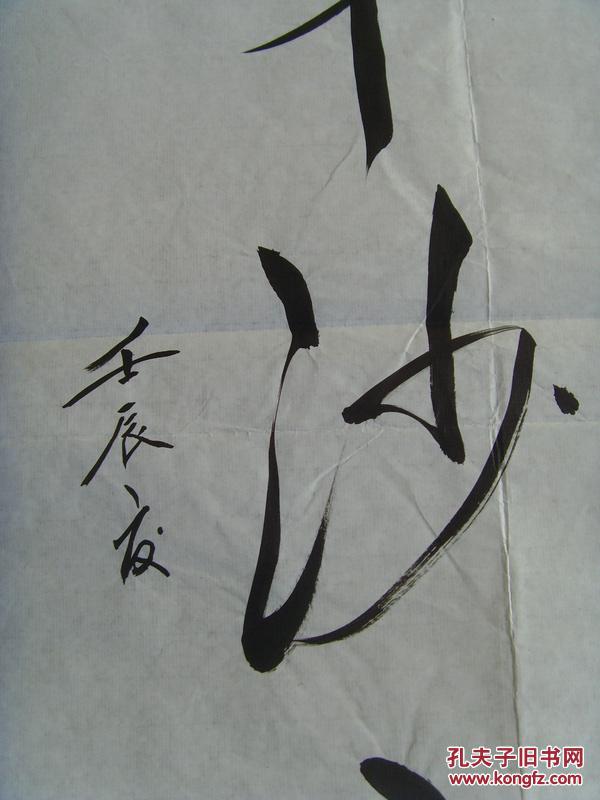 沙
壬辰夏
孔夫子旧书网
www.kongfz.com